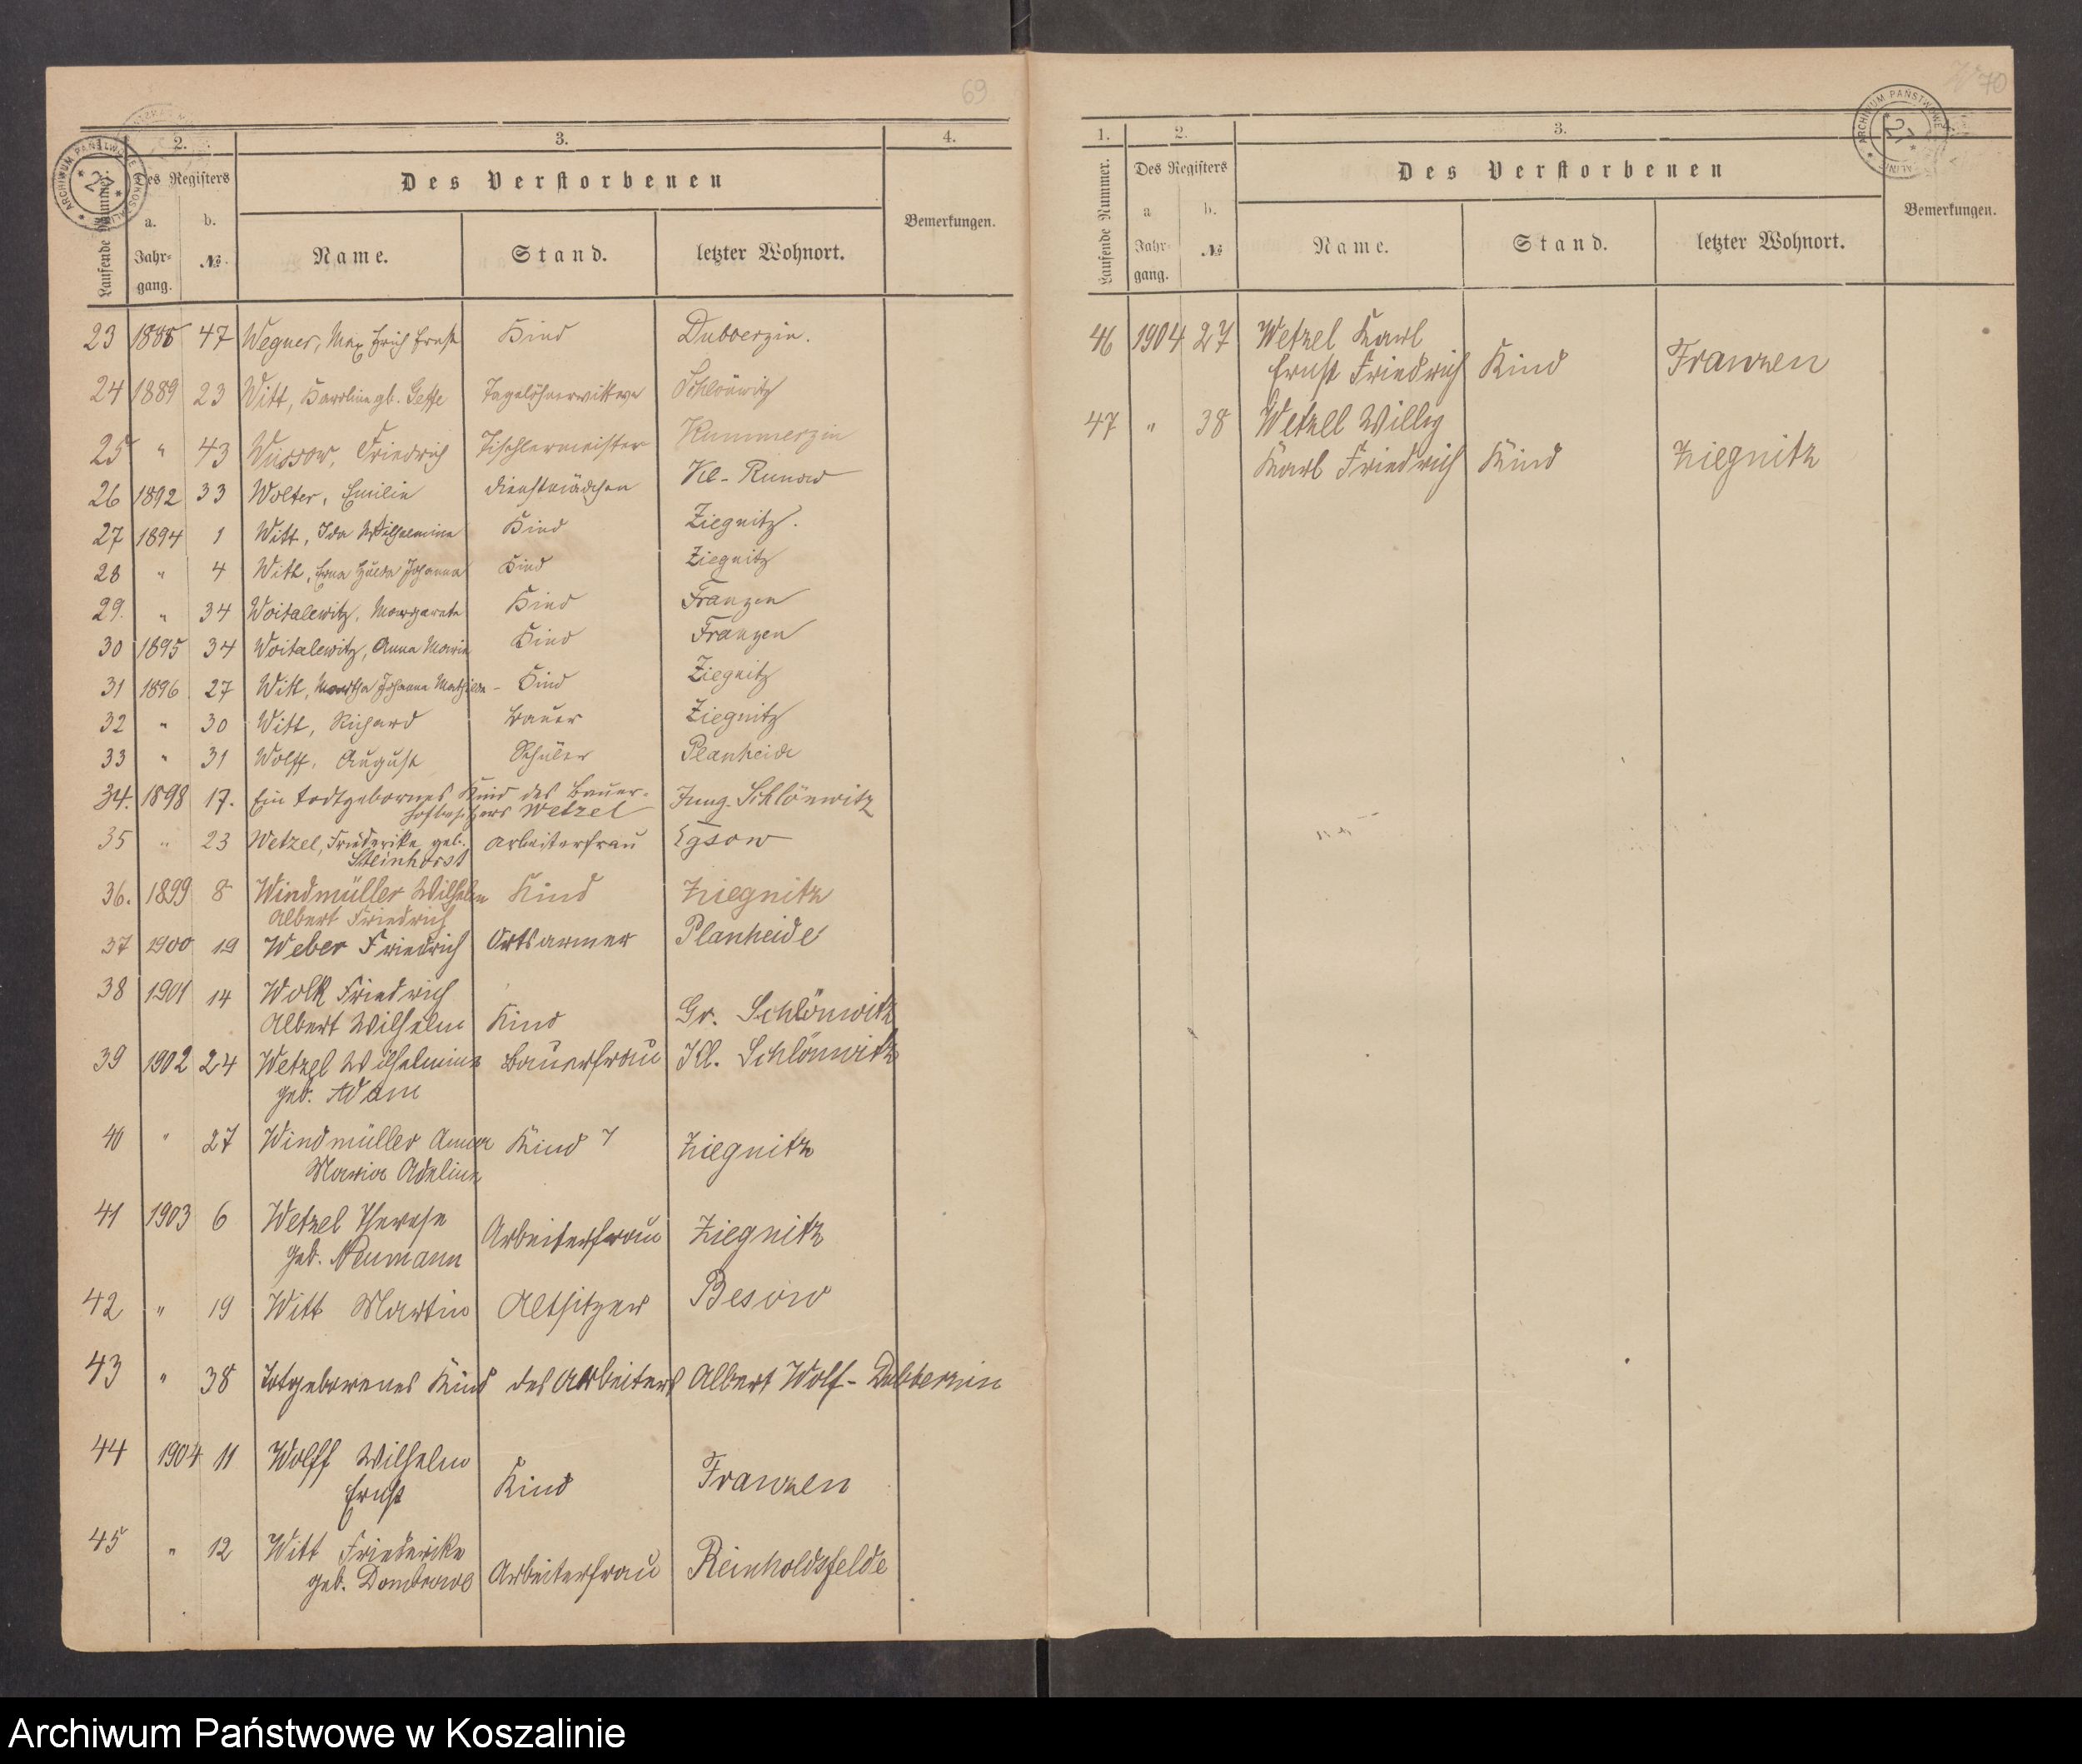 69
3.
2.
4.
Des Registers
Des Verstorbenen
Laufende Nummer.
a.
b.
Jahrgang.
№
Name.
Stand.
letzter Wohnort.
Bemerkungen.
23 1888 47 Wegner, Max Erich Ernst Kind Dubberzin.
24 1889 23 Witt, Karoline gb. Kind Tagelöhnerwittwe Schlönwitz
25 " 43 Wussow, Friedrich Tischlermeister Kummerzin
26 1892 33 Wolter, Emilie Dienstmädchen Kl-Runow
27 1894 1 Witt, Ida Wilhelmine Kind Ziegnitz.
28 " 4 Witt, Erna Hulda Johanna Kind Ziegnitz
29. " 34 Woitalewitz, Margarete Kind Franzen
30 1895 34 Woitalewitz, Anna Marie Kind Franzen
31 1896 27 Witt, Martha Johanna Mathilde - Kind Ziegnitz
32 " 30 Witt, Richard Bauer Ziegnitz
33 " 31 Wolff, August Schüler Planheide
34. 1898 17. Ein todtgebornes Kind des Bauer- Jung-Schlönwitz
hofbesitzers Wetzel
35 " 23 Wetzel, Friederike geb. Arbeiterfrau Egsow
Steinhorst
36. 1899 8 Windmüller Wilhelm Kind Ziegnitz
Albert Friedrich
37 1900 19 Weber Friedrich Ortsarmer Planheide
38 1901 14 Wolk Friedrich
Albert Wilhelm Kind Gr. Schlönwitz
39 1902 24 Wetzel Wilhelmine Bauerfrau Kl. Schlönwitz
geb. Adam
40 " 27 Windmüller Anna Kind Ziegnitz
Maria Adeline
41 1903 6 Wetzel Therese Arbeiterfrau Ziegnitz
geb. Neumann
42 " 19 Witt Martin Altsitzer Besow
43 " 38 Totgeborenes Kind des Arbeiters Albert Wolf - Dubberzin
44 1904 11 Wolff Wilhelm
Ernst Kind Franzen
45 " 12 Witt Friederike
geb. Dombrowe Arbeiterfrau Reinholdsfelde
70
1.
2.
3.
Laufende Nummer.
Des Registers
Des Verstorbenen
a
b.
Jahrgang.
№
Name.
Stand.
letzter Wohnort.
Bemerkungen.
46 1904 27 Wetzel Karl
Ernst Friedrich Kind Franzen
47 " 38 Wetzel Willy
Karl Friedrich Kind Ziegnitz
Archiwum Państwowe w Koszalinie